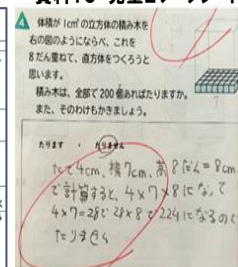 4 体積が1cm³の立方体の積み木を
右の図のようにならべ、これを
8だん重ねて、直方体をつくろうと
思います。
積み木は、全部で200個あればたりますか。
また、そのわけもかきましょう。
7
たります ・ たりません
たて4cm、横7cm、高8だん=8cm
で計算すると、4×7×8になって
4×7=28で28×8で224になるので
たりません